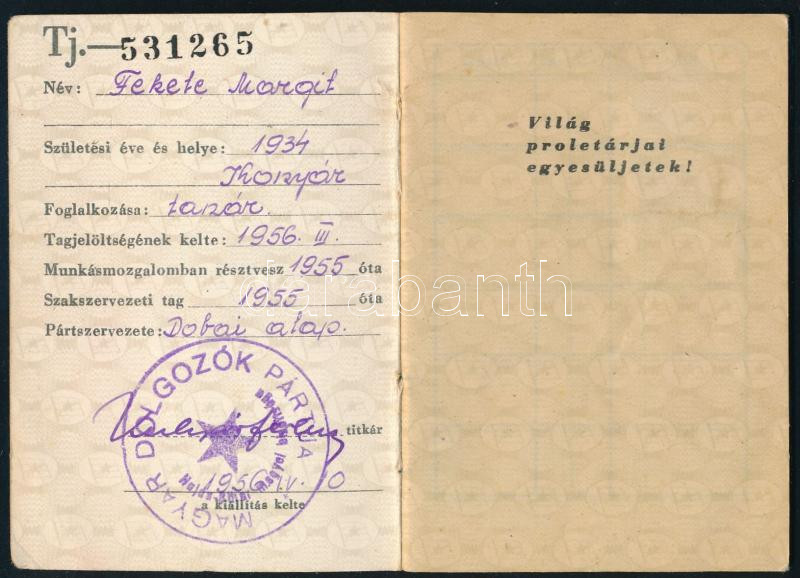 Tj.—531265
Név: Fekete Margit
Születési éve és helye: 1934
Konyár
Foglalkozása: tanár.
Tagjelöltségének kelte: 1956. III.
Munkásmozgalomban résztvesz 1955 óta
Szakszervezeti tag 1955 óta
Pártszervezete: Dobai alap.
MAGYAR DOLGOZÓK PÁRTJA
titkár
1956. IV. 10
a kiállítás kelte
Világ
proletárjai
egyesüljetek!
darabanth